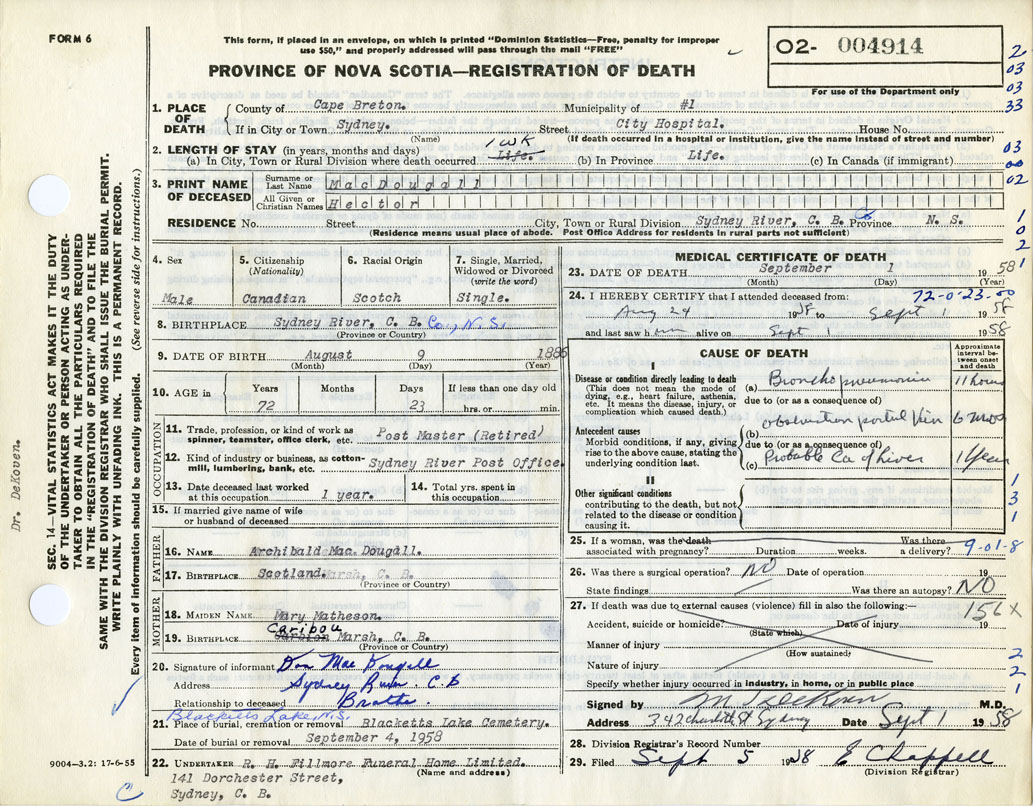 FORM 6
This form, if placed in an envelope, on which is printed "Dominion Statistics—Free, penalty for improper
use $50," and properly addressed will pass through the mail "FREE"
PROVINCE OF NOVA SCOTIA—REGISTRATION OF DEATH
O2- 004914
For use of the Department only
2
03
03
33
03
02
1
0
2
1. PLACE OF DEATH
County of Cape Breton. Municipality of #1
If in City or Town Sydney. Street City Hospital. House No.
(Name) (If death occurred in a hospital or institution, give the name instead of street and number)
2. LENGTH OF STAY (in years, months and days) 1 WK
(a) In City, Town or Rural Division where death occurred Life. (b) In Province Life. (c) In Canada (if immigrant)
3. PRINT NAME OF DECEASED
Surname or Last Name MacDougall
All Given or Christian Names Hector
RESIDENCE No. Street City, Town or Rural Division Sydney River, C. B. Co Province N. S.
(Residence means usual place of abode. Post Office Address for residents in rural parts not sufficient)
4. Sex
Male
5. Citizenship
(Nationality)
Canadian
6. Racial Origin
Scotch
7. Single, Married,
Widowed or Divorced
(write the word)
Single.
8. BIRTHPLACE Sydney River, C. B. Co., N.S.
(Province or Country)
9. DATE OF BIRTH August 9 1886
(Month) (Day) (Year)
10. AGE in
Years Months Days If less than one day old
72 23 hrs. or min.
OCCUPATION
11. Trade, profession, or kind of work as
spinner, teamster, office clerk, etc. Post Master (Retired)
12. Kind of industry or business, as cotton-
mill, lumbering, bank, etc. Sydney River Post Office
13. Date deceased last worked
at this occupation 1 year.
14. Total yrs. spent in
this occupation
15. If married give name of wife
or husband of deceased
FATHER
16. NAME Archibald Mac. Dougall.
17. BIRTHPLACE Scotland. Marsh, C. B.
(Province or Country)
MOTHER
18. MAIDEN NAME Mary Matheson.
Caribou
19. BIRTHPLACE Marsh, C. B.
(Province or Country)
20. Signature of informant Dan Mac Dougall
Address Sydney River. C.B
Relationship to deceased Brother.
Blacketts Lake, N.S.
21. Place of burial, cremation or removal Blacketts Lake Cemetery.
Date of burial or removal September 4, 1958
22. UNDERTAKER R. H. Fillmore Funeral Home Limited.
(Name and address)
141 Dorchester Street,
Sydney, C. B.
MEDICAL CERTIFICATE OF DEATH
23. DATE OF DEATH September 1 1958
(Month) (Day) (Year)
1
24. I HEREBY CERTIFY that I attended deceased from: 72-0-23-00
Aug 24 1958 to Sept 1 1958
and last saw him alive on Sept 1 1958
CAUSE OF DEATH
Approximate
interval be-
tween onset
and death
I
Disease or condition directly leading to death
(This does not mean the mode of
dying, e.g., heart failure, asthenia,
etc. It means the disease, injury, or
complication which caused death.)
(a) Bronchopneumonia 11 hours
due to (or as a consequence of)
Antecedent causes
Morbid conditions, if any, giving
rise to the above cause, stating the
underlying condition last.
(b) portal vein 6 mos
due to (or as a consequence of)
(c) Probable Ca of liver 1 year
II
Other significant conditions
contributing to the death, but not
related to the disease or condition
causing it.
1
3
1
25. If a woman, was the death Was there
associated with pregnancy? Duration weeks. a delivery? 9-01-8
26. Was there a surgical operation? NO Date of operation 19
State findings Was there an autopsy? NO
27. If death was due to external causes (violence) fill in also the following:— 156X
Accident, suicide or homicide? Date of injury 19
(State which)
Manner of injury
(How sustained)
Nature of injury
Specify whether injury occurred in industry, in home, or in public place
2
2
1
Signed by M.D.
Address 342 Charlotte St Sydney Date Sept 1 1958
28. Division Registrar's Record Number
29. Filed Sept 5 1958 E Chappell
(Division Registrar)
SEC. 14—VITAL STATISTICS ACT MAKES IT THE DUTY
OF THE UNDERTAKER OR PERSON ACTING AS UNDER-
TAKER TO OBTAIN ALL THE PARTICULARS REQUIRED
IN THE "REGISTRATION OF DEATH" AND TO FILE THE
SAME WITH THE DIVISION REGISTRAR WHO SHALL ISSUE THE BURIAL PERMIT.
WRITE PLAINLY WITH UNFADING INK. THIS IS A PERMANENT RECORD.
Every item of information should be carefully supplied. (See reverse side for instructions.)
Dr. DeKoven.
9004—3.2: 17-6-55